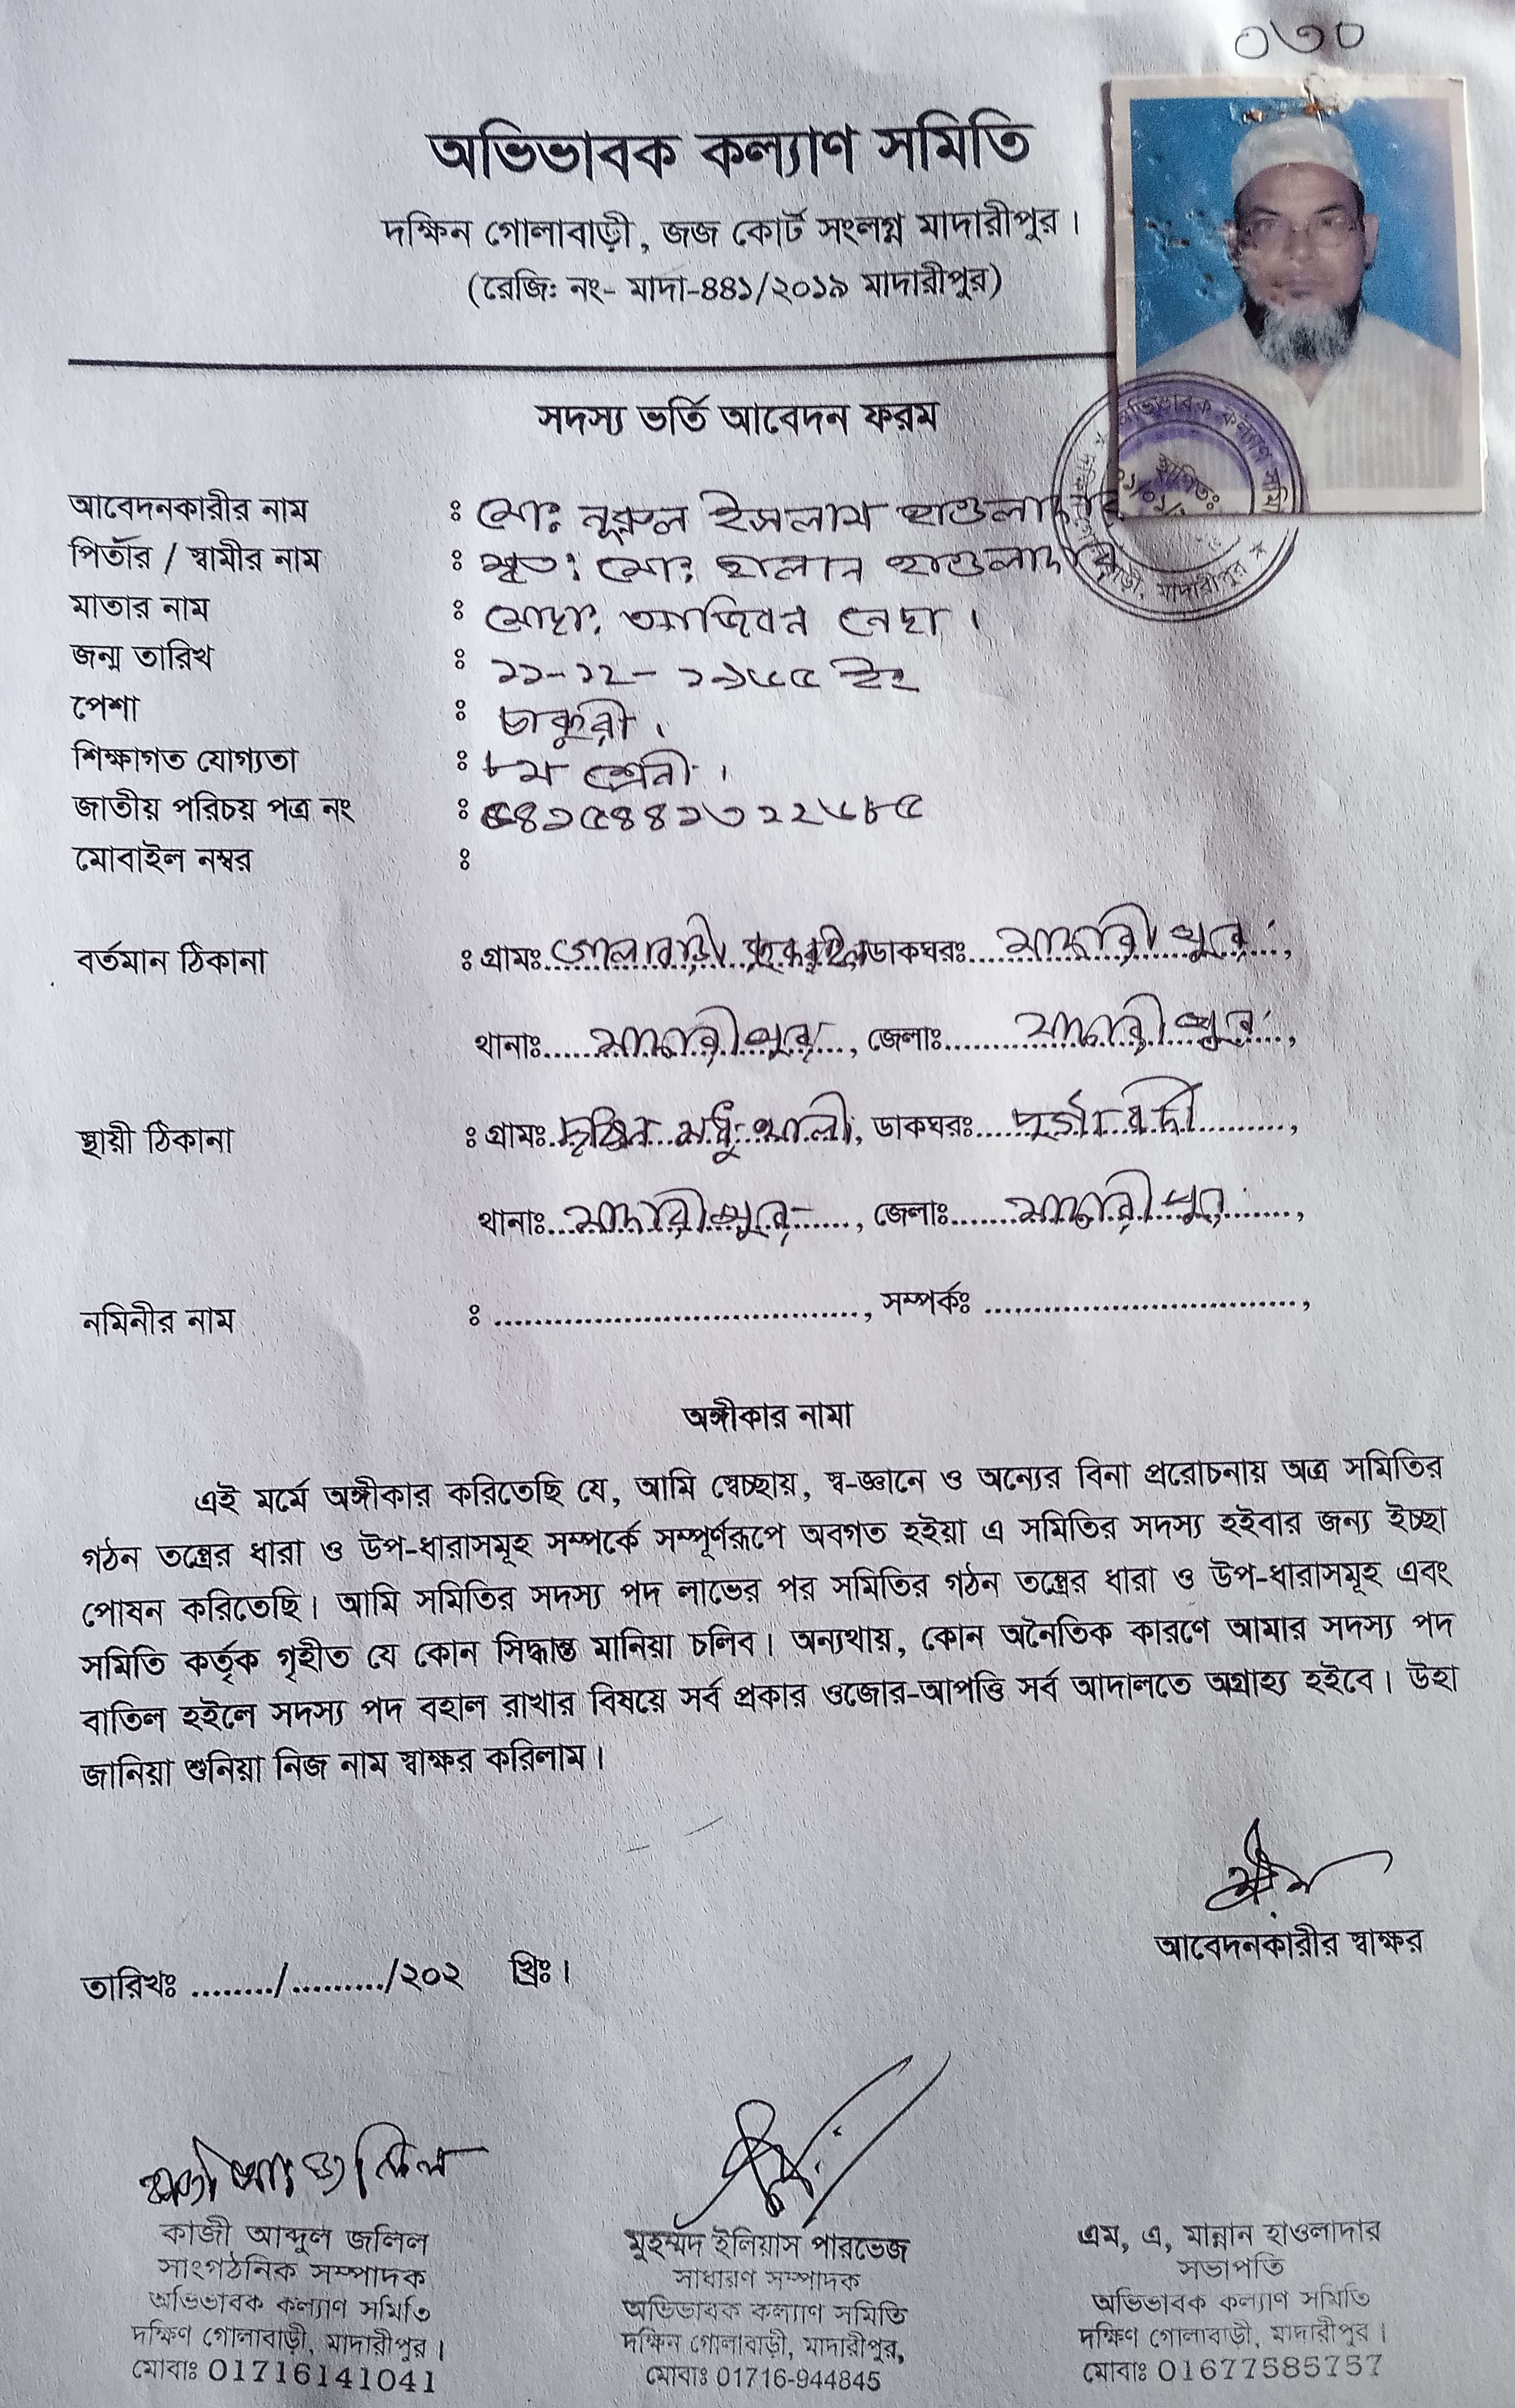 ০৩০
অভিভাবক কল্যাণ সমিতি
দক্ষিন গোলাবাড়ী, জজ কোর্ট সংলগ্ন মাদারীপুর।
(রেজিঃ নং- মাদা-৪৪১/২০১৯ মাদারীপুর)
সদস্য ভর্তি আবেদন ফরম
আবেদনকারীর নাম : মোঃ নূরুল ইসলাম হাওলাদার
পিতার / স্বামীর নাম : মৃতঃ মোঃ হালান হাওলাদার
মাতার নাম : মোছাঃ আজিবন নেছা।
জন্ম তারিখ : ১১-১২-১৯৬৫ ইং
পেশা : চাকুরী।
শিক্ষাগত যোগ্যতা : ৮ম শ্রেনী।
জাতীয় পরিচয় পত্র নং : ৫৪১৫৪৪১৩২২৬৮৫
মোবাইল নম্বর :
বর্তমান ঠিকানা : গ্রামঃ গোলাবাড়ী ডাকঘরঃ মাদারীপুর,
থানাঃ মাদারীপুর, জেলাঃ মাদারীপুর,
স্থায়ী ঠিকানা : গ্রামঃ দক্ষিন খালী, ডাকঘরঃ দুর্গাবর্দী,
থানাঃ মাদারীপুর, জেলাঃ মাদারীপুর,
নমিনীর নাম : ...................................., সম্পর্কঃ ................................,
অঙ্গীকার নামা
এই মর্মে অঙ্গীকার করিতেছি যে, আমি স্বেচ্ছায়, স্ব-জ্ঞানে ও অন্যের বিনা প্ররোচনায় অত্র সমিতির
গঠন তন্ত্রের ধারা ও উপ-ধারাসমূহ সম্পর্কে সম্পূর্ণরূপে অবগত হইয়া এ সমিতির সদস্য হইবার জন্য ইচ্ছা
পোষন করিতেছি। আমি সমিতির সদস্য পদ লাভের পর সমিতির গঠন তন্ত্রের ধারা ও উপ-ধারাসমূহ এবং
সমিতি কর্তৃক গৃহীত যে কোন সিদ্ধান্ত মানিয়া চলিব। অন্যথায়, কোন অনৈতিক কারণে আমার সদস্য পদ
বাতিল হইলে সদস্য পদ বহাল রাখার বিষয়ে সর্ব প্রকার ওজোর-আপত্তি সর্ব আদালতে অগ্রাহ্য হইবে। উহা
জানিয়া শুনিয়া নিজ নাম স্বাক্ষর করিলাম।
আবেদনকারীর স্বাক্ষর
তারিখঃ ......../........./২০২ খ্রিঃ।
কাজী আব্দুল জলিল
সাংগঠনিক সম্পাদক
অভিভাবক কল্যাণ সমিতি
দক্ষিণ গোলাবাড়ী, মাদারীপুর।
মোবাঃ 01716141041
মুহম্মদ ইলিয়াস পারভেজ
সাধারণ সম্পাদক
অভিভাবক কল্যাণ সমিতি
দক্ষিন গোলাবাড়ী, মাদারীপুর,
মোবাঃ 01716-944845
এম, এ, মান্নান হাওলাদার
সভাপতি
অভিভাবক কল্যাণ সমিতি
দক্ষিণ গোলাবাড়ী, মাদারীপুর।
মোবাঃ 01677585757